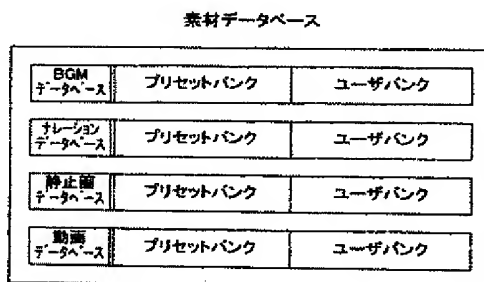 素材データベース
BGM
データベース
プリセットバンク
ユーザバンク
ナレーション
データベース
プリセットバンク
ユーザバンク
静止画
データベース
プリセットバンク
ユーザバンク
動画
データベース
プリセットバンク
ユーザバンク